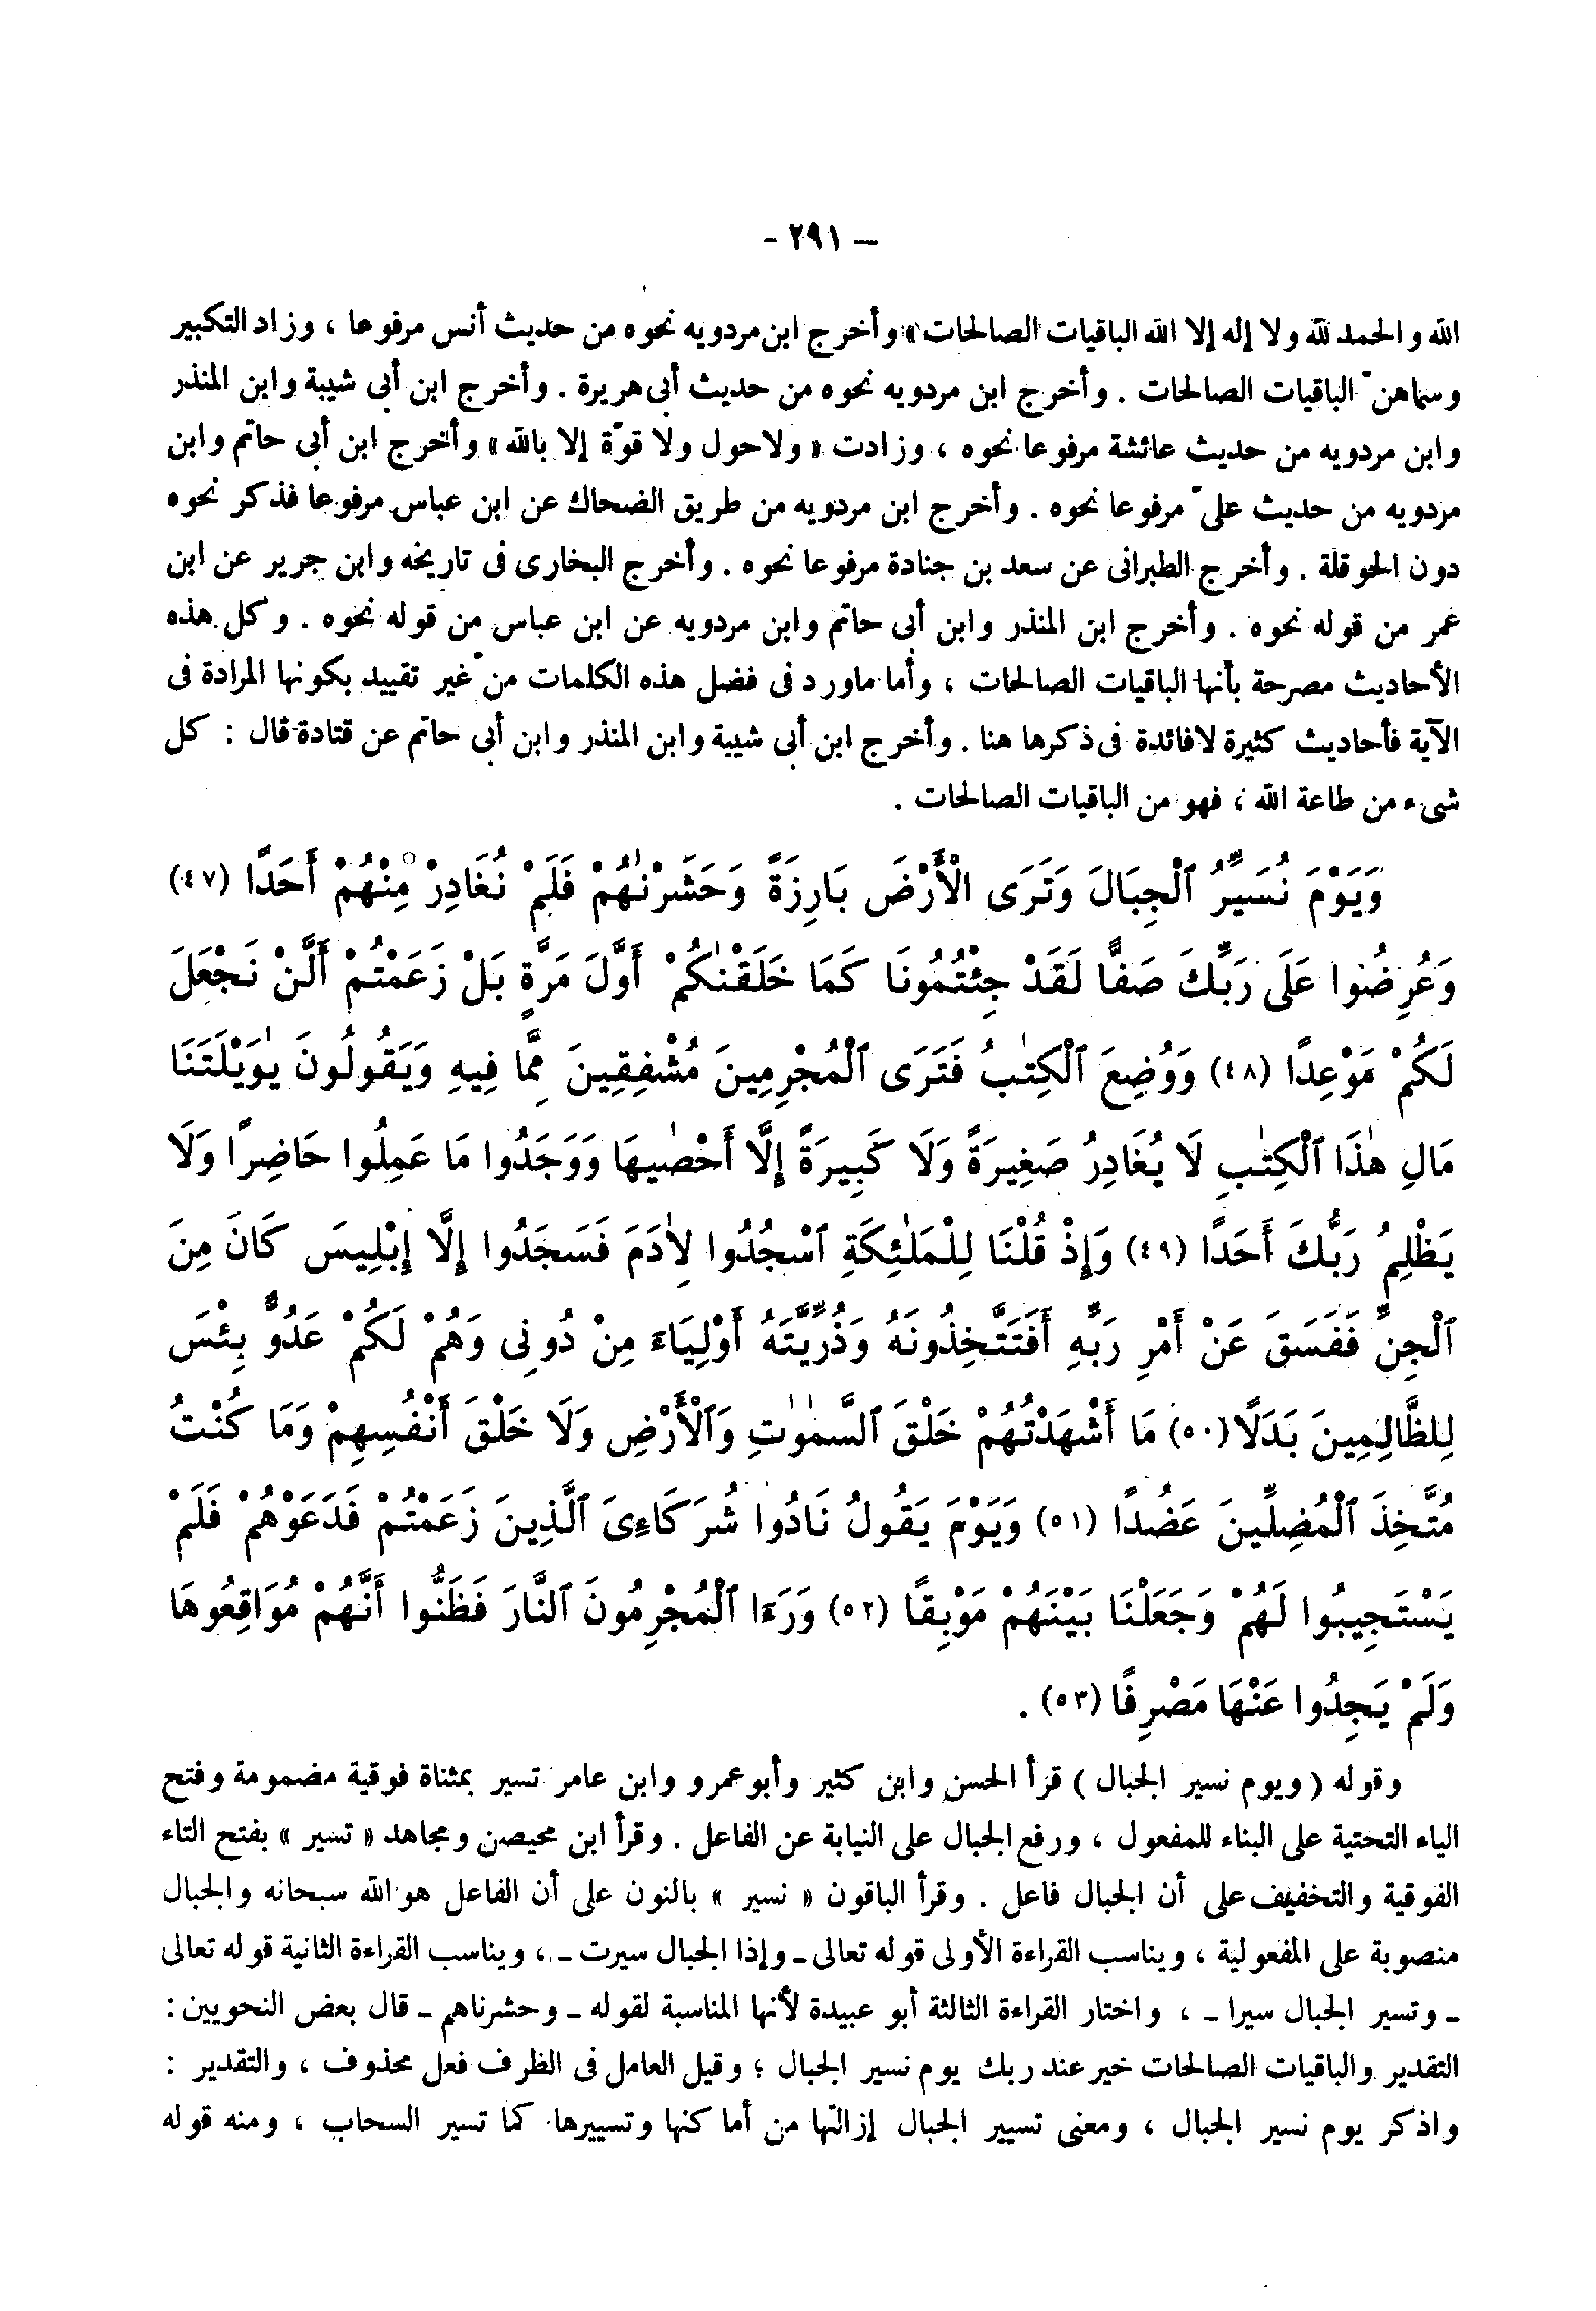 – ٢٩١ -
الله والحمد لله ولا إله إلا الله الباقيات الصالحات» وأخرج ابن مردويه نحوه من حديث أنس مرفوعا ، وزاد التكبير
وسماهنّ الباقيات الصالحات . وأخرج ابن مردويه نحوه من حديث أبى هريرة . وأخرج ابن أبى شيبة وابن المنذر
وابن مردويه من حديث عائشة مرفوعا نحوه ، وزادت « ولاحول ولا قوّة إلا بالله» وأخرج ابن أبى حاتم وابن
مردويه من حديث علىّ مرفوعا نحوه . وأخرج ابن مردويه من طريق الضحاك عن ابن عباس مرفوعا فذكر نحوه
دون الحوقلة . وأخرج الطبرانى عن سعد بن جنادة مرفوعا نحوه . وأخرج البخارى فى تاريخه وابن جرير عن ابن
عمر من قوله نحوه . وأخرج ابن المنذر وابن أبى حاتم وابن مردويه عن ابن عباس من قوله نحوه . وكل هذه
الأحاديث مصرحة بأنها الباقيات الصالحات ، وأما ماورد فى فضل هذه الكلمات من غير تقييد بكونها المرادة فى
الآية فأحاديث كثيرة لافائدة فى ذكرها هنا . وأخرج ابن أبى شيبة وابن المنذر وابن أبى حاتم عن قتادة قال : كل
شىء من طاعة الله ، فهو من الباقيات الصالحات .
وَيَوْمَ نُسَيِّرُ ٱلْجِبَالَ وَتَرَى ٱلْأَرْضَ بَارِزَةً وَحَشَرْنٰهُمْ فَلَمْ نُغَادِرْ مِنْهُمْ أَحَدًا (٤٧)
وَعُرِضُوا عَلَى رَبِّكَ صَفًّا لَقَدْ جِئْتُمُونَا كَمَا خَلَقْنٰكُمْ أَوَّلَ مَرَّةٍ بَلْ زَعَمْتُمْ أَلَّنْ نَجْعَلَ
لَكُمْ مَوْعِدًا (٤٨) وَوُضِعَ ٱلْكِتٰبُ فَتَرَى ٱلْمُجْرِمِينَ مُشْفِقِينَ مِمَّا فِيهِ وَيَقُولُونَ يٰوَيْلَتَنَا
مَالِ هٰذَا ٱلْكِتٰبِ لَا يُغَادِرُ صَغِيرَةً وَلَا كَبِيرَةً إِلَّا أَحْصٰيهَا وَوَجَدُوا مَا عَمِلُوا حَاضِرًا وَلَا
يَظْلِمُ رَبُّكَ أَحَدًا (٤٩) وَإِذْ قُلْنَا لِلْمَلٰئِكَةِ ٱسْجُدُوا لِأٰدَمَ فَسَجَدُوا إِلَّا إِبْلِيسَ كَانَ مِنَ
ٱلْجِنِّ فَفَسَقَ عَنْ أَمْرِ رَبِّهِ أَفَتَتَّخِذُونَهُ وَذُرِّيَّتَهُ أَوْلِيَاءَ مِنْ دُونِى وَهُمْ لَكُمْ عَدُوٌّ بِئْسَ
لِلظَّالِمِينَ بَدَلًا (٥٠) مَا أَشْهَدْتُهُمْ خَلْقَ ٱلسَّمٰوٰتِ وَٱلْأَرْضِ وَلَا خَلْقَ أَنْفُسِهِمْ وَمَا كُنْتُ
مُتَّخِذَ ٱلْمُضِلِّينَ عَضُدًا (٥١) وَيَوْمَ يَقُولُ نَادُوا شُرَكَاءِىَ ٱلَّذِينَ زَعَمْتُمْ فَدَعَوْهُمْ فَلَمْ
يَسْتَجِيبُوا لَهُمْ وَجَعَلْنَا بَيْنَهُمْ مَوْبِقًا (٥٢) وَرَءَا ٱلْمُجْرِمُونَ ٱلنَّارَ فَظَنُّوا أَنَّهُمْ مُوَاقِعُوهَا
وَلَمْ يَجِدُوا عَنْهَا مَصْرِفًا (٥٣) .
وقوله ( ويوم نسير الجبال ) قرأ الحسن وابن كثير وأبوعمرو وابن عامر تسير بمثناة فوقية مضمومة وفتح
الياء التحتية على البناء للمفعول ، ورفع الجبال على النيابة عن الفاعل . وقرأ ابن محيصن ومجاهد « تسير » بفتح التاء
الفوقية والتخفيف على أن الجبال فاعل . وقرأ الباقون « نسير » بالنون على أن الفاعل هو الله سبحانه والجبال
منصوبة على المفعولية ، ويناسب القراءة الأولى قوله تعالى ـ وإذا الجبال سيرت ـ ، ويناسب القراءة الثانية قوله تعالى
ـ وتسير الجبال سيرا ـ ، واختار القراءة الثالثة أبو عبيدة لأنها المناسبة لقوله ـ وحشرناهم ـ قال بعض النحويين :
التقدير والباقيات الصالحات خير عند ربك يوم نسير الجبال ؛ وقيل العامل فى الظرف فعل محذوف ، والتقدير :
واذكر يوم نسير الجبال ، ومعنى تسيير الجبال إزالتها من أماكنها وتسييرها كما تسير السحاب ، ومنه قوله